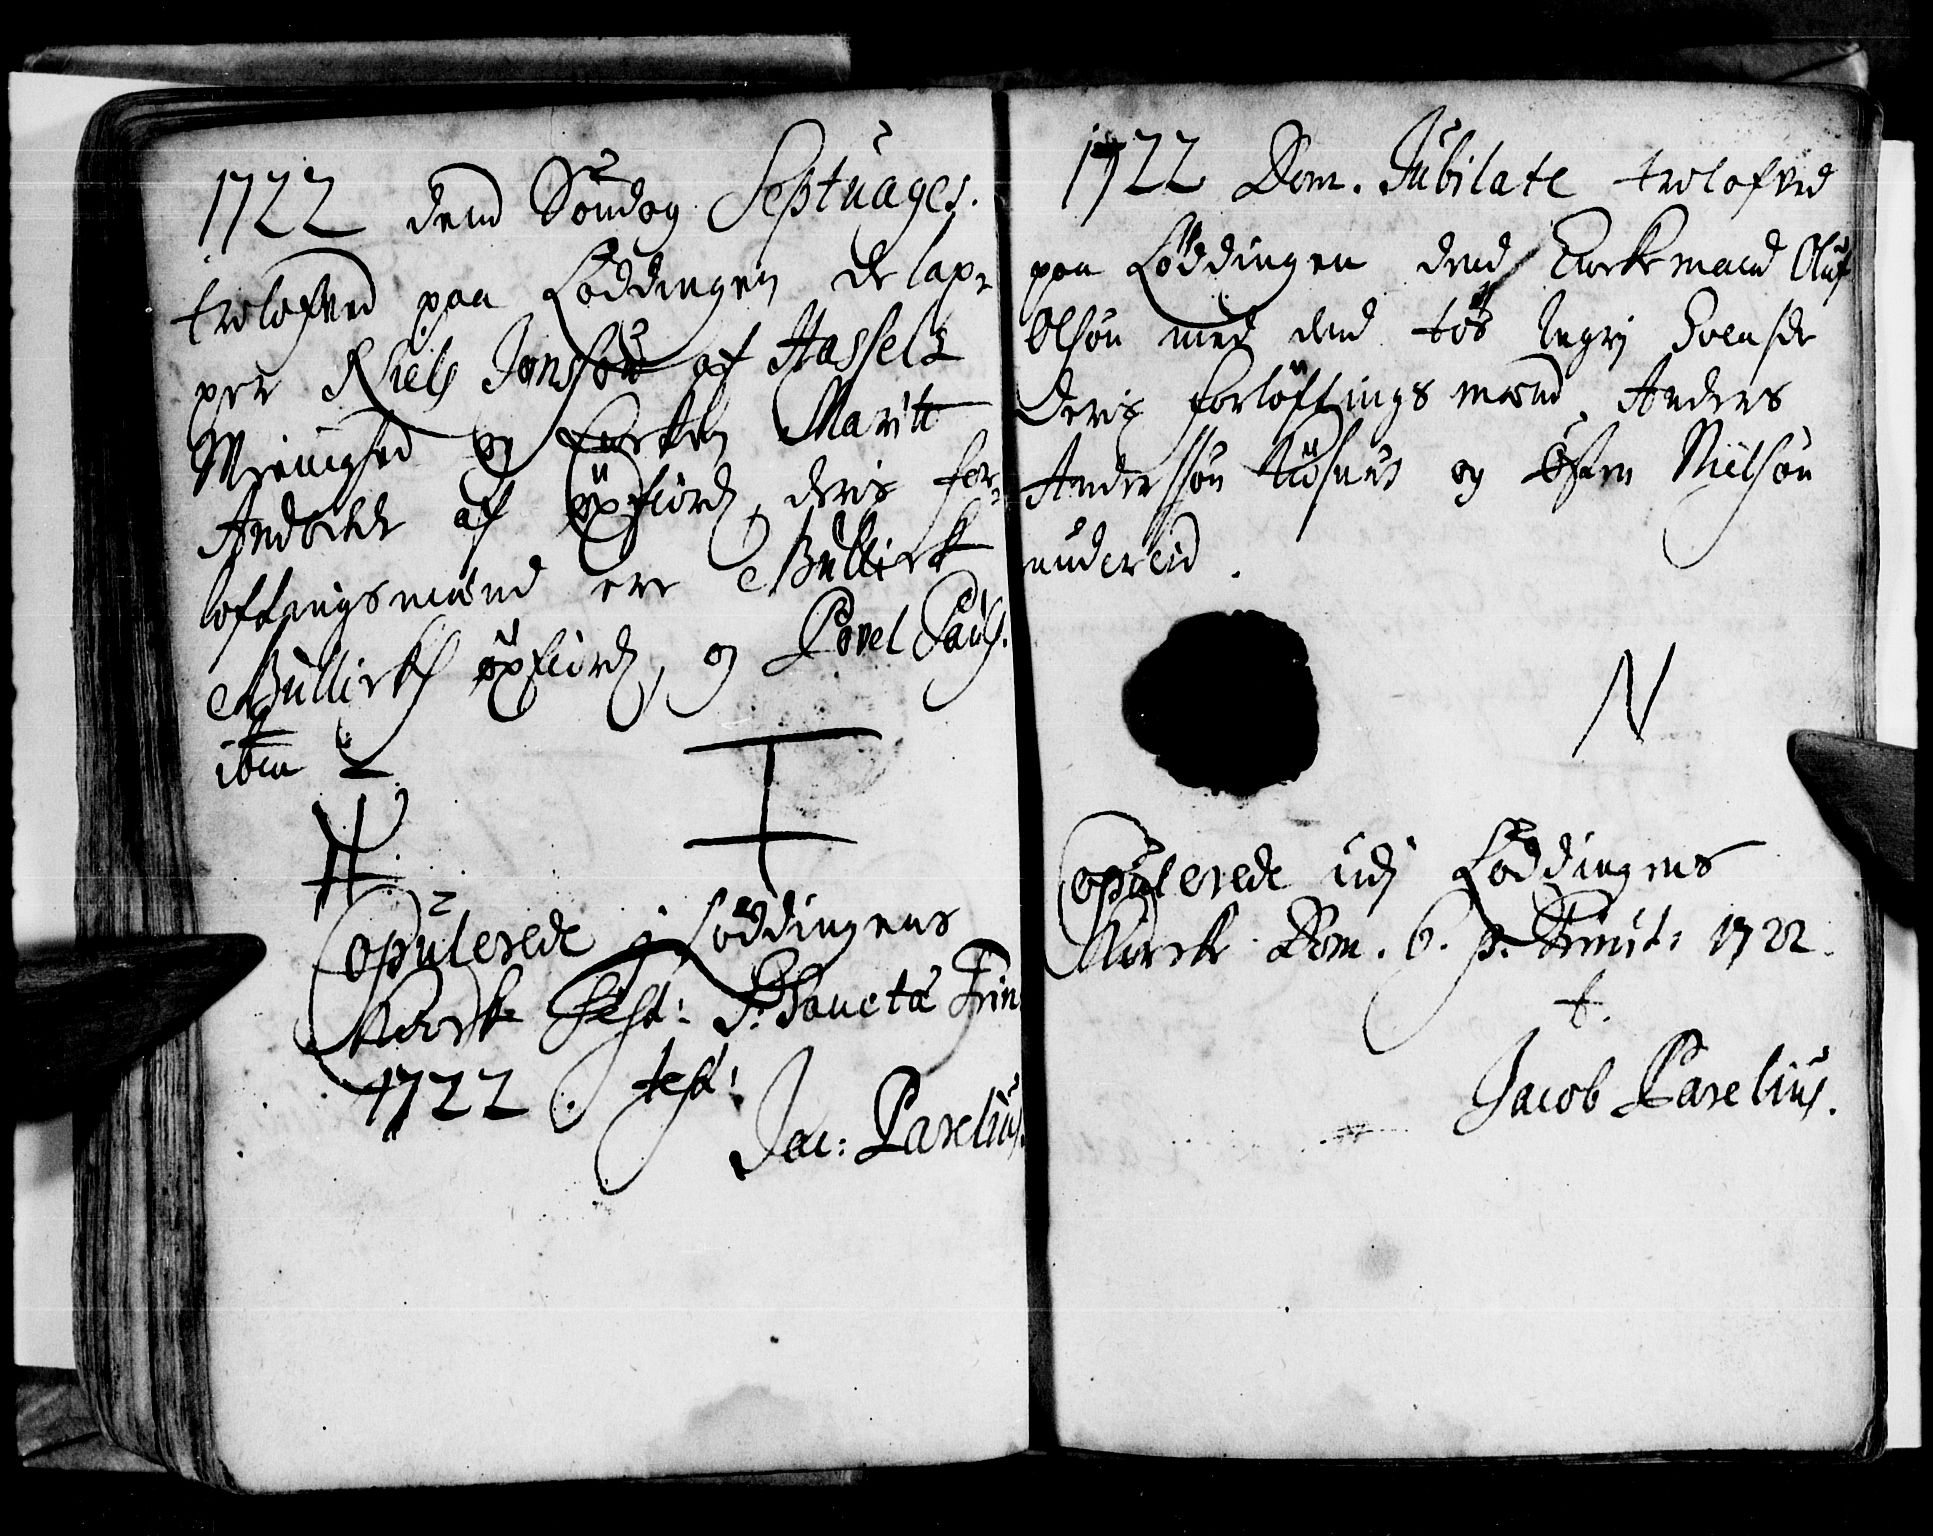 1722 dend Søndag Septuages.
trolofved paa Løddingen de lap-
per Niels Jonsøn af Hassels
Mænighed og Encken Maritt
Andersdr af Øxfiord, deris for-
loftningsmænd ere Bullierk
Bullierks Øxfiord, og Povel Pauls.
ibm
Copulerede j Løddingens
Kircke Fest: S: Sanctæ Trin
1722. test:
Jac: Parelius.
1722 Dom. Jubilate trolofved
paa Løddingen dend Enckemand Oluf
Olsøn med dend tøs Ingri Svensdr
deris forløftningsmænd, Anders
Anderssøn Kiøsnæs og Østen Nielsøn
andereid.
N
Copulerede udj Løddingens
Kircke Dom. 6. p. Trinit: 1722.
t.
Jacob Parelius.